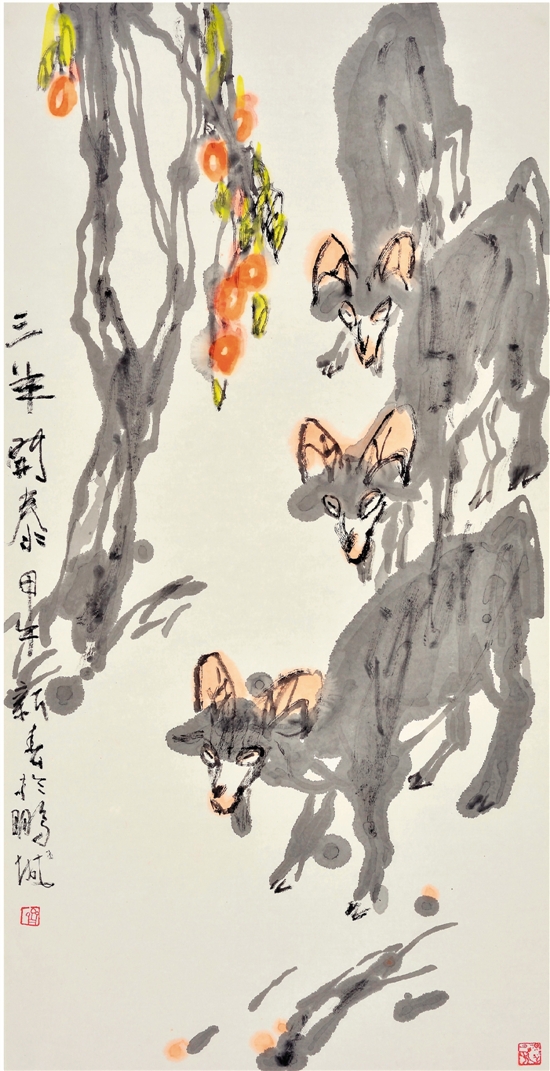 三羊開泰 甲午新春於鹏城